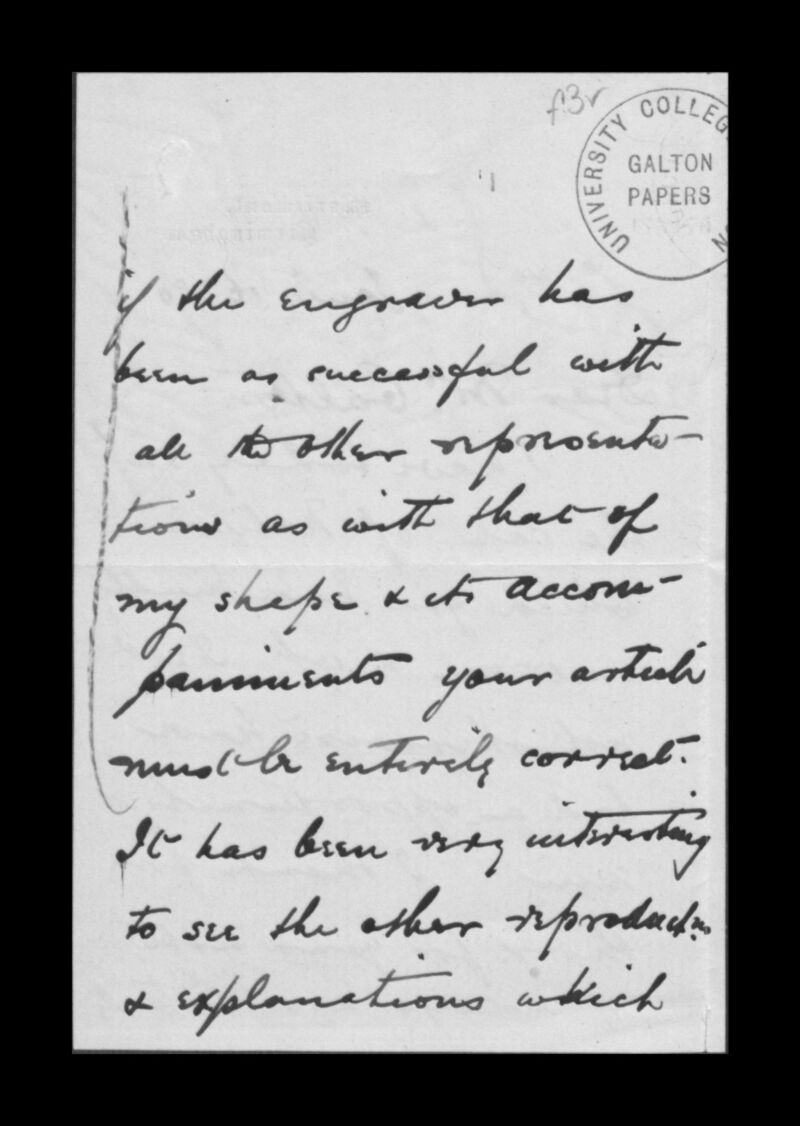 f.3r
UNIVERSITY COLLEGE
GALTON
PAPERS
if the engraver has
been as successful with
all the other representa-
tions as with that of
my shape & its accom-
paniments your article
must be entirely correct.
It has been very interesting
to see the other reproductns
& explanations which